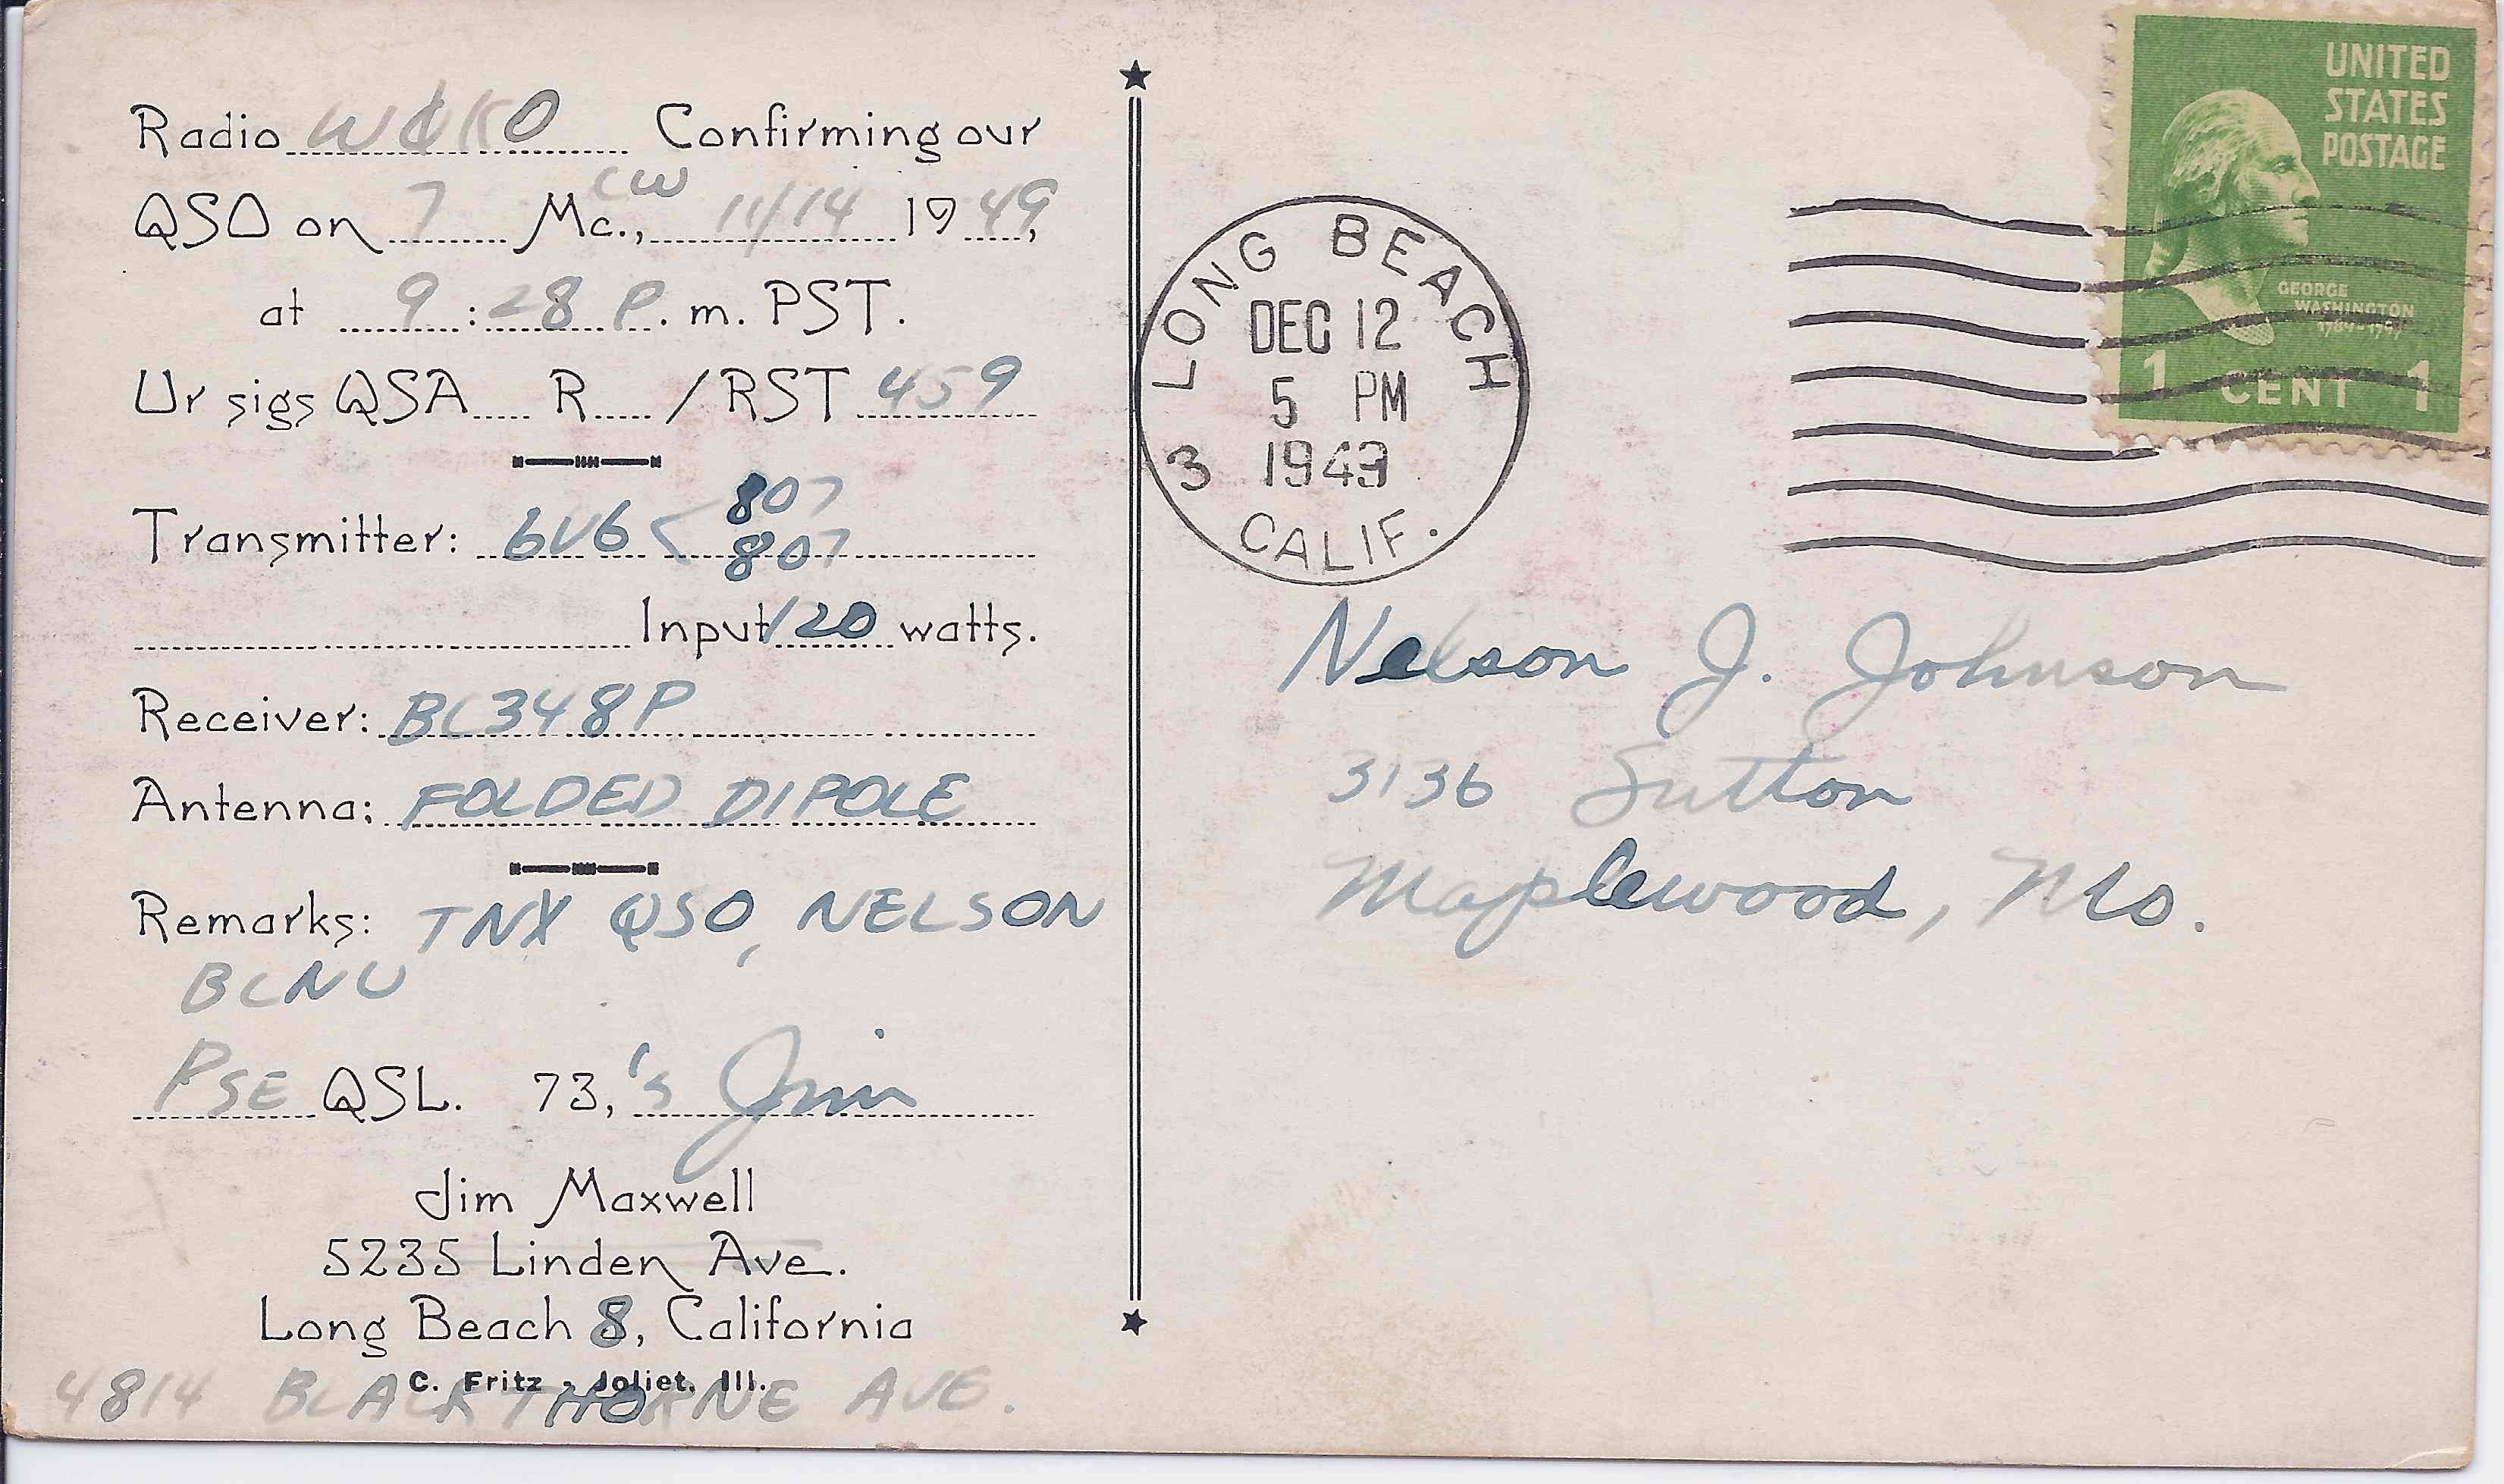 Radio WØKO Confirming our
CW
QSO on 7 Mc., 11/14 1949,
at 9:28 P. m. PST.
Ur sigs QSA R /RST 459
807
Transmitter: 6V6 < 807
Input 120 watts.
Receiver: BC348P
Antenna: FOLDED DIPOLE
Remarks: TNX QSO, NELSON
BCNU
PSE QSL. 73,'s Jim
Jim Maxwell
5235 Linden Ave.
Long Beach 8, California
C. Fritz - Joliet, Ill.
4814 BLACKTHORNE AVE.
LONG BEACH
DEC 12
5 PM
3 1949
CALIF.
UNITED
STATES
POSTAGE
GEORGE
WASHINGTON
1 CENT 1
Nelson J. Johnson
3136 Sutton
Maplewood, Mo.